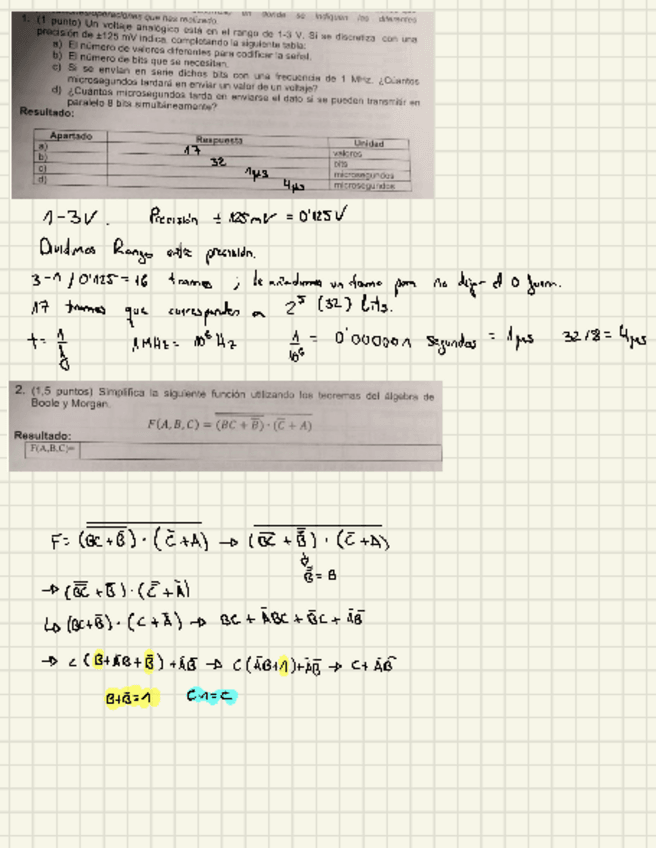 operaciones que has realizado. en donde se indiquen los diferentes
1. (1 punto) Un voltaje analógico está en el rango de 1-3 V. Si se discretiza con una
precisión de ±125 mV indica, completando la siguiente tabla:
a) El número de valores diferentes para codificar la señal.
b) El número de bits que se necesitan.
c) Si se envían en serie dichos bits con una frecuencia de 1 MHz. ¿Cuántos
microsegundos tardará en enviar un valor de un voltaje?
d) ¿Cuántos microsegundos tarda en enviarse el dato si se pueden transmitir en
paralelo 8 bits simultáneamente?
Resultado:
Apartado Respuesta Unidad
a) 17 valores
b) 32 bits
c) 1µs microsegundos
d) 4µs microsegundos
1-3V. Precisión ± 125mV = 0'125V
Dividimos Rango entre precisión.
3-1/0'125 = 16 tramos ; le añadimos un tramo para no dejar el 0 fuera.
17 tramos que corresponden a 2^5 (32) bits.
t = 1/f 1MHz = 10^6 Hz 1/10^6 = 0'000001 segundos = 1µs 32/8 = 4µs
2. (1,5 puntos) Simplifica la siguiente función utilizando los teoremas del álgebra de
Boole y Morgan.
F(A,B,C) = \overline{(BC + \overline{B}) · (\overline{C} + A)}
Resultado:
F(A,B,C)=
F = \overline{(\overline{BC + B̄}) · (C̄ + A)} → \overline{(\overline{BC} + \overline{B̄}) · (C̄ + A)}
B̿ = B
→ (\overline{\overline{BC}} + B̄) · (\overline{C̄} + Ā)
↳ (BC + B̄) · (C + Ā) → BC + ĀBC + B̄C + ĀB̄
→ C (B + ĀB + B̄) + ĀB̄ → C (ĀB + 1) + ĀB̄ → C + ĀB̄
B + B̄ = 1 C·1 = C